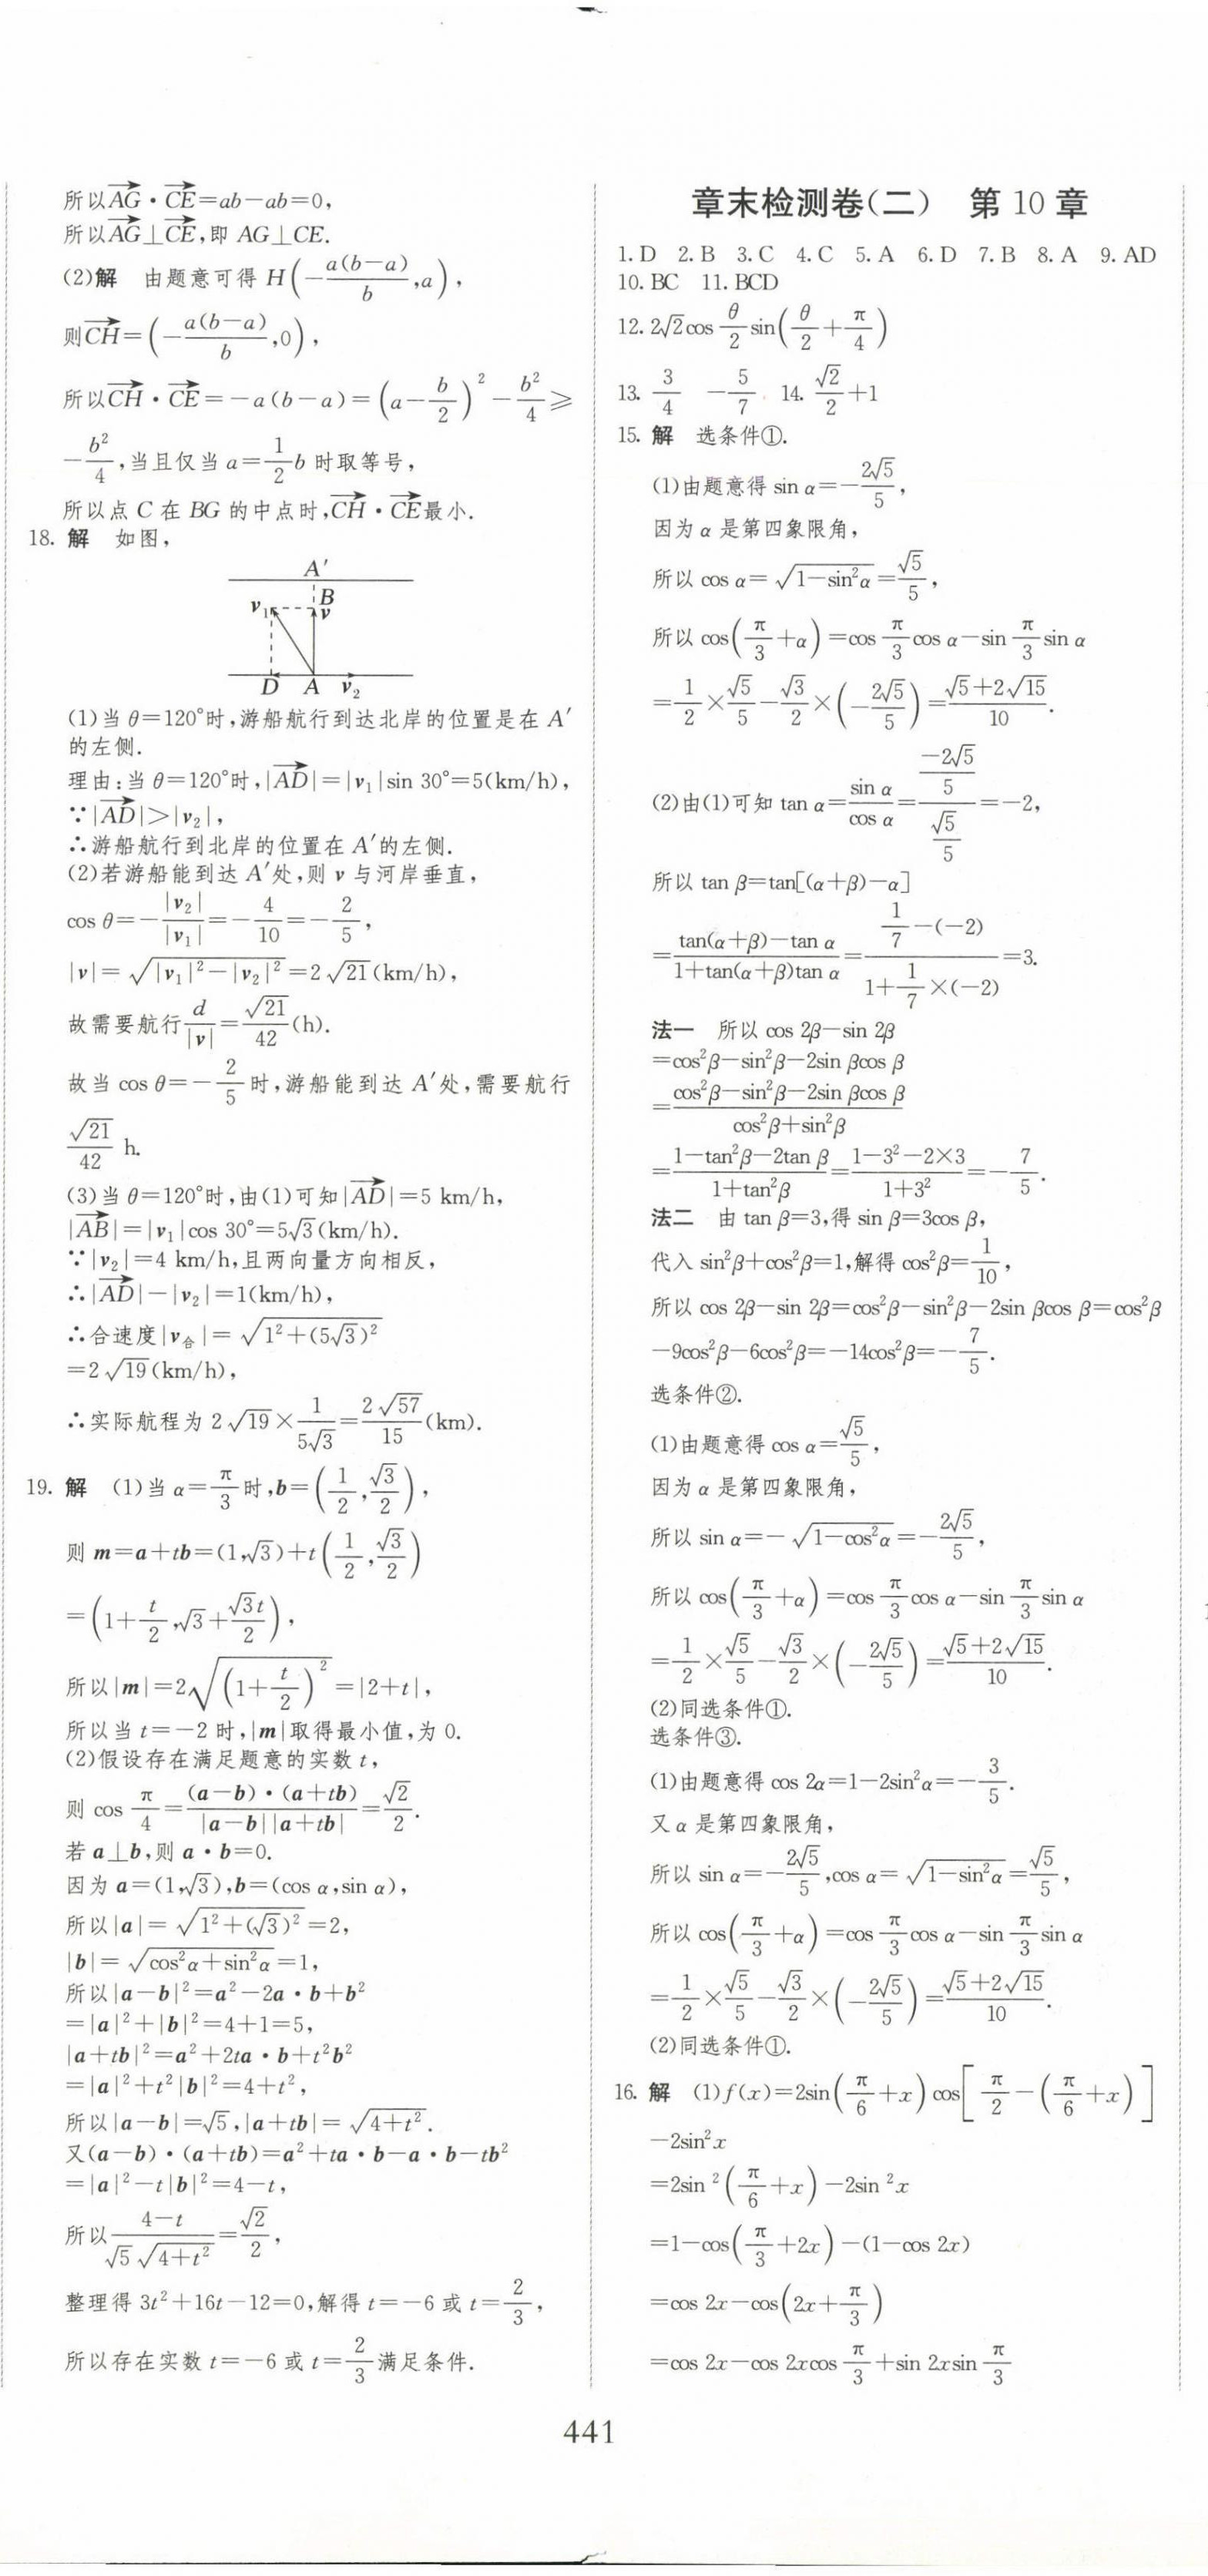 所以AG·CE=ab-ab=0,
所以AG⊥CE,即 AG⊥CE.
(2)解 由题意可得 H(-a(b-a)/b,a),
则CH=(-a(b-a)/b,0),
所以CH·CE=-a(b-a)=(a-b/2)²-b²/4≥
-b²/4,当且仅当 a=1/2 b 时取等号,
所以点 C 在 BG 的中点时,CH·CE最小.
18. 解 如图,
A′
v₁ B
v
D A v₂
(1)当 θ=120°时,游船航行到达北岸的位置是在 A′
的左侧.
理由:当 θ=120°时,|AD|=|v₁|sin 30°=5(km/h),
∵|AD|>|v₂|,
∴游船航行到北岸的位置在 A′的左侧.
(2)若游船能到达 A′处,则 v 与河岸垂直,
cos θ=-|v₂|/|v₁|=-4/10=-2/5,
|v|=√(|v₁|²-|v₂|²)=2√21(km/h),
故需要航行d/|v|=√21/42(h).
故当 cos θ=-2/5时,游船能到达 A′处,需要航行
√21/42 h.
(3)当 θ=120°时,由(1)可知|AD|=5 km/h,
|AB|=|v₁|cos 30°=5√3(km/h).
∵|v₂|=4 km/h,且两向量方向相反,
∴|AD|-|v₂|=1(km/h),
∴合速度|v合|=√(1²+(5√3)²)
=2√19(km/h),
∴实际航程为 2√19×1/(5√3)=2√57/15(km).
19. 解 (1)当 α=π/3时,b=(1/2,√3/2),
则 m=a+tb=(1,√3)+t(1/2,√3/2)
=(1+t/2,√3+√3t/2),
所以|m|=2√((1+t/2)²)=|2+t|,
所以当 t=-2 时,|m|取得最小值,为 0.
(2)假设存在满足题意的实数 t,
则 cos π/4=(a-b)·(a+tb)/(|a-b||a+tb|)=√2/2.
若 a⊥b,则 a·b=0.
因为 a=(1,√3),b=(cos α,sin α),
所以|a|=√(1²+(√3)²)=2,
|b|=√(cos²α+sin²α)=1,
所以|a-b|²=a²-2a·b+b²
=|a|²+|b|²=4+1=5,
|a+tb|²=a²+2ta·b+t²b²
=|a|²+t²|b|²=4+t²,
所以|a-b|=√5,|a+tb|=√(4+t²).
又(a-b)·(a+tb)=a²+ta·b-a·b-tb²
=|a|²-t|b|²=4-t,
所以(4-t)/(√5√(4+t²))=√2/2,
整理得 3t²+16t-12=0,解得 t=-6 或 t=2/3,
所以存在实数 t=-6 或 t=2/3满足条件.
章末检测卷(二) 第 10 章
1. D 2. B 3. C 4. C 5. A 6. D 7. B 8. A 9. AD
10. BC 11. BCD
12. 2√2cos θ/2 sin(θ/2+π/4)
13. 3/4 -5/7 14. √2/2+1
15. 解 选条件①.
(1)由题意得 sin α=-2√5/5,
因为 α 是第四象限角,
所以 cos α=√(1-sin²α)=√5/5,
所以 cos(π/3+α)=cos π/3 cos α-sin π/3 sin α
=1/2×√5/5-√3/2×(-2√5/5)=(√5+2√15)/10.
(2)由(1)可知 tan α=sin α/cos α=(-2√5/5)/(√5/5)=-2,
所以 tan β=tan[(α+β)-α]
=(tan(α+β)-tan α)/(1+tan(α+β)tan α)=(1/7-(-2))/(1+1/7×(-2))=3.
法一 所以 cos 2β-sin 2β
=cos²β-sin²β-2sin βcos β
=(cos²β-sin²β-2sin βcos β)/(cos²β+sin²β)
=(1-tan²β-2tan β)/(1+tan²β)=(1-3²-2×3)/(1+3²)=-7/5.
法二 由 tan β=3,得 sin β=3cos β,
代入 sin²β+cos²β=1,解得 cos²β=1/10,
所以 cos 2β-sin 2β=cos²β-sin²β-2sin βcos β=cos²β
-9cos²β-6cos²β=-14cos²β=-7/5.
选条件②.
(1)由题意得 cos α=√5/5,
因为 α 是第四象限角,
所以 sin α=-√(1-cos²α)=-2√5/5,
所以 cos(π/3+α)=cos π/3 cos α-sin π/3 sin α
=1/2×√5/5-√3/2×(-2√5/5)=(√5+2√15)/10.
(2)同选条件①.
选条件③.
(1)由题意得 cos 2α=1-2sin²α=-3/5.
又 α 是第四象限角,
所以 sin α=-2√5/5,cos α=√(1-sin²α)=√5/5,
所以 cos(π/3+α)=cos π/3 cos α-sin π/3 sin α
=1/2×√5/5-√3/2×(-2√5/5)=(√5+2√15)/10.
(2)同选条件①.
16. 解 (1)f(x)=2sin(π/6+x)cos[π/2-(π/6+x)]
-2sin²x
=2sin²(π/6+x)-2sin²x
=1-cos(π/3+2x)-(1-cos 2x)
=cos 2x-cos(2x+π/3)
=cos 2x-cos 2xcos π/3+sin 2xsin π/3
441